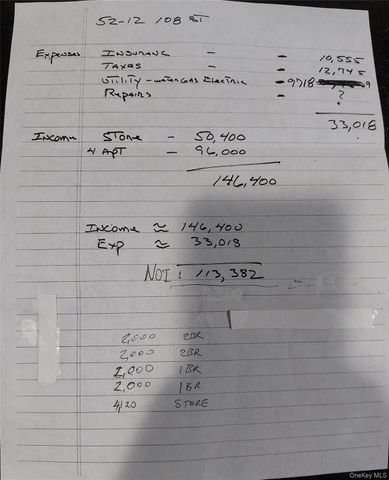 52-12 108 ST
Expenses Insuranc - - 10,555
Taxes - - 12,745
Utility - water Gas Electric - 9718
Repairs - ?
33,018
Income Store - 50,400
4 Apt - 96,000
146,400
Income ≈ 146,400
Exp ≈ 33,018
NOI: 113,382
2,000 2BR
2,000 2BR
2,000 1BR
2,000 1BR
4,120 STORE
OneKey MLS